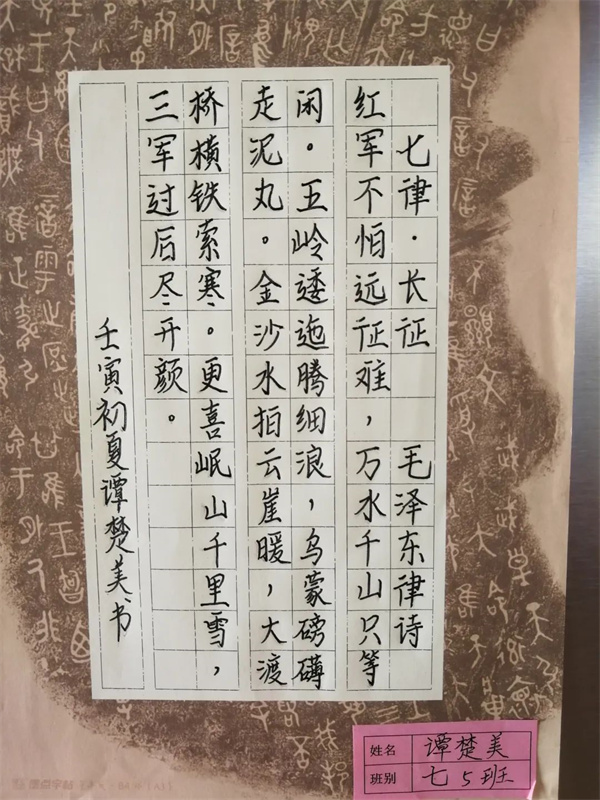 七律·长征 毛泽东律诗
红军不怕远征难，万水千山只等
闲。五岭逶迤腾细浪，乌蒙磅礴
走泥丸。金沙水拍云崖暖，大渡
桥横铁索寒。更喜岷山千里雪，
三军过后尽开颜。
壬寅初夏谭楚美书
姓名 谭楚美
班别 七5班